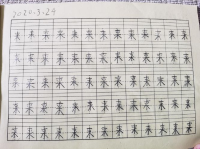 2020-3-29
来 来 来 来 来 来 来 来 来 来 来 来 来
来 来 来 来 来 来 来 来 来 来 来 来
来 来 来 来 来 来 来 来 来 来 来 来
来 来 来 来 来 来 来 来 来 来 来 来
来 来 来 来 来 来 来 来 来 来 来 来